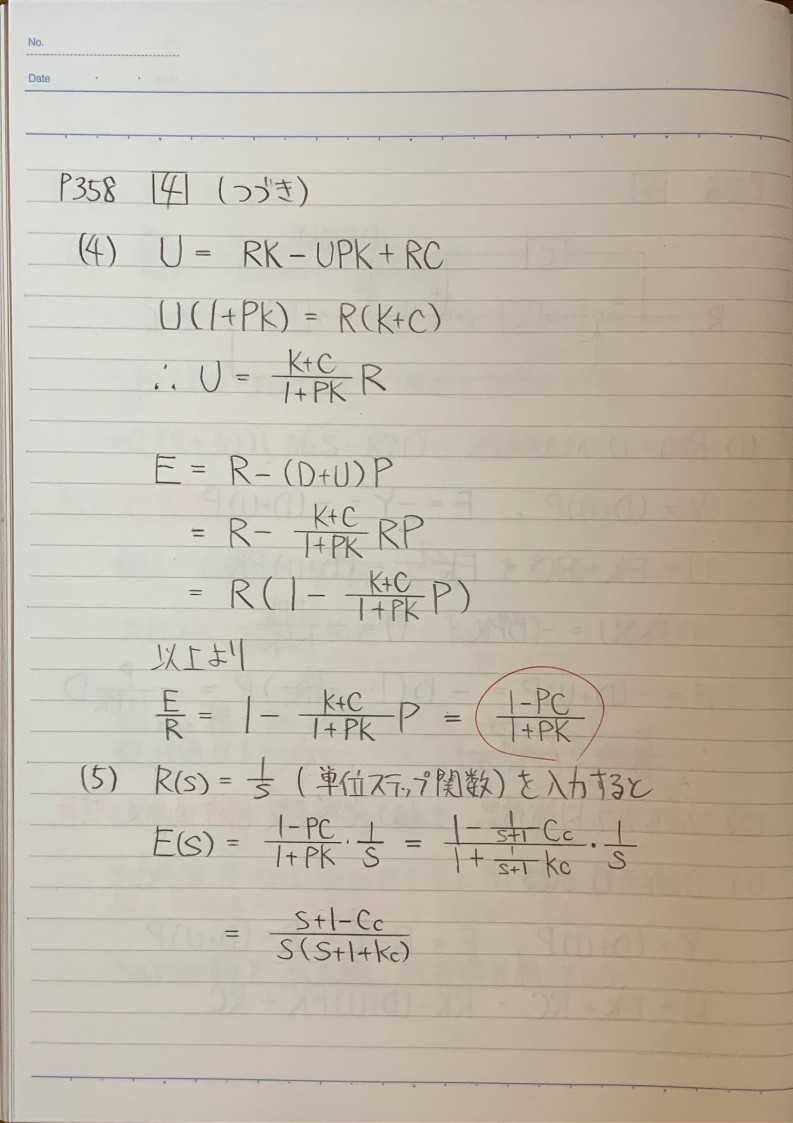 No.
Date
P358 4 (つづき)
(4) U = RK - UPK + RC
U(1+PK) = R(K+C)
∴ U = \frac{K+C}{1+PK} R
E = R - (D+U)P
= R - \frac{K+C}{1+PK} RP
= R(1 - \frac{K+C}{1+PK} P)
以上より
\frac{E}{R} = 1 - \frac{K+C}{1+PK} P = \frac{1-PC}{1+PK}
(5) R(s) = \frac{1}{s} (単位ステップ関数)を入力すると
E(s) = \frac{1-PC}{1+PK} · \frac{1}{s} = \frac{1 - \frac{1}{s+1} Cc}{1 + \frac{1}{s+1} kc} · \frac{1}{s}
= \frac{s+1-Cc}{s(s+1+kc)}